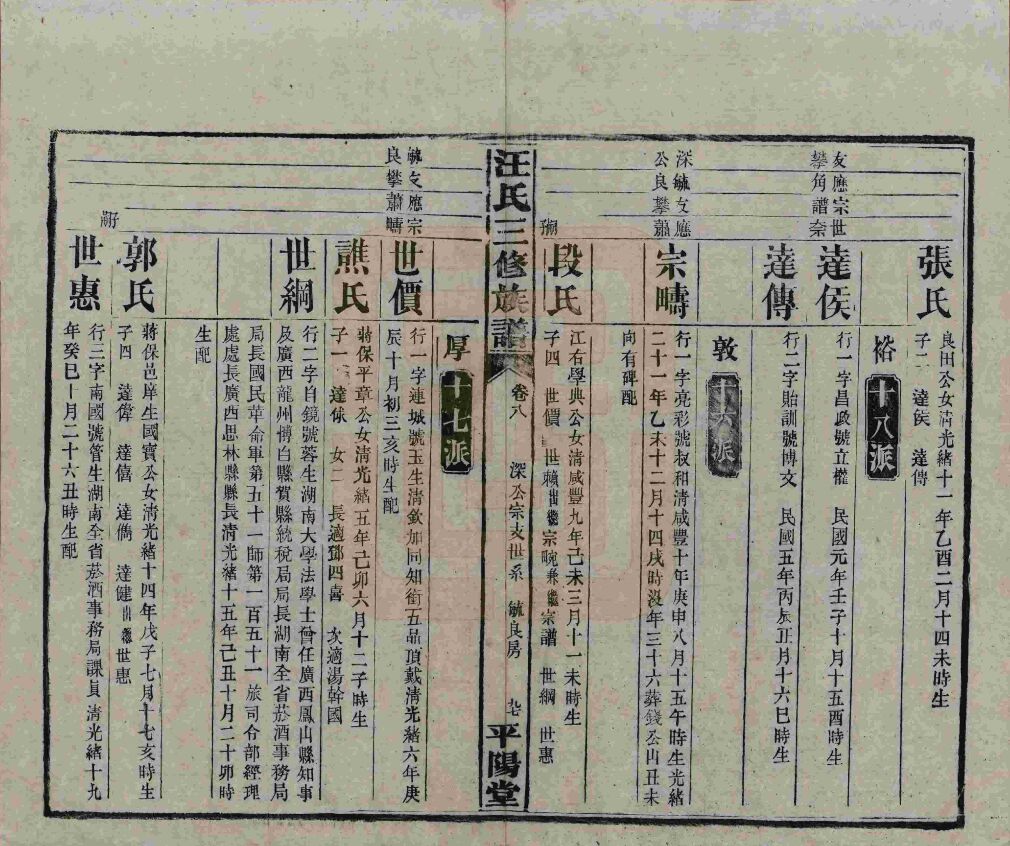 張氏
良田公女清光緒十一年乙酉二月十四未時生
子二 達侯 達傳
裕 十八派
友應宗世
攀角譜奈
達侯
行一字昌政號立權 民國元年壬子十月十五酉時生
達傳
行二字貽訓號博文 民國五年丙辰正月十六巳時生
敦 十六派
深毓友應
公良攀蕭
宗疇
行一字亮彩號叔和清咸豐十年庚申八月十五午時生光緒
二十一年乙未十二月十四戌時沒年三十六葬錢公山丑未
向有碑配
段氏
江右學典公女清咸豐九年己未三月十一未時生
子四 世價 世賴出繼宗畹兼繼宗譜 世綱 世惠
汪氏三修族譜
卷八
深公宗支世系 毓良房
平陽堂
厚 十七派
毓友應宗
良攀蕭疇
世價
行一字連城號玉生清欽加同知銜五品頂戴清光緒六年庚
辰十月初三亥時生配
譙氏
蔣保平章公女清光緒五年己卯六月十二子時生
子一 達俅 女二 長適鄧四喜 次適湯幹國
世綱
行二字自鏡號蓉生湖南大學法學士曾任廣西鳳山縣知事
及廣西龍州博白縣賀縣統稅局局長湖南全省菸酒事務局
局長國民革命軍第五十一師第一百五十一旅司令部經理
處處長廣西思林縣縣長清光緒十五年己丑十月二十卯時
生配
郭氏
蔣保邑庠生國賓公女清光緒十四年戊子七月十七亥時生
子四 達偉 達僖 達儁 達健出繼世惠
世惠
行三字南國號管生湖南全省菸酒事務局課員清光緒十九
年癸巳十月二十六丑時生配